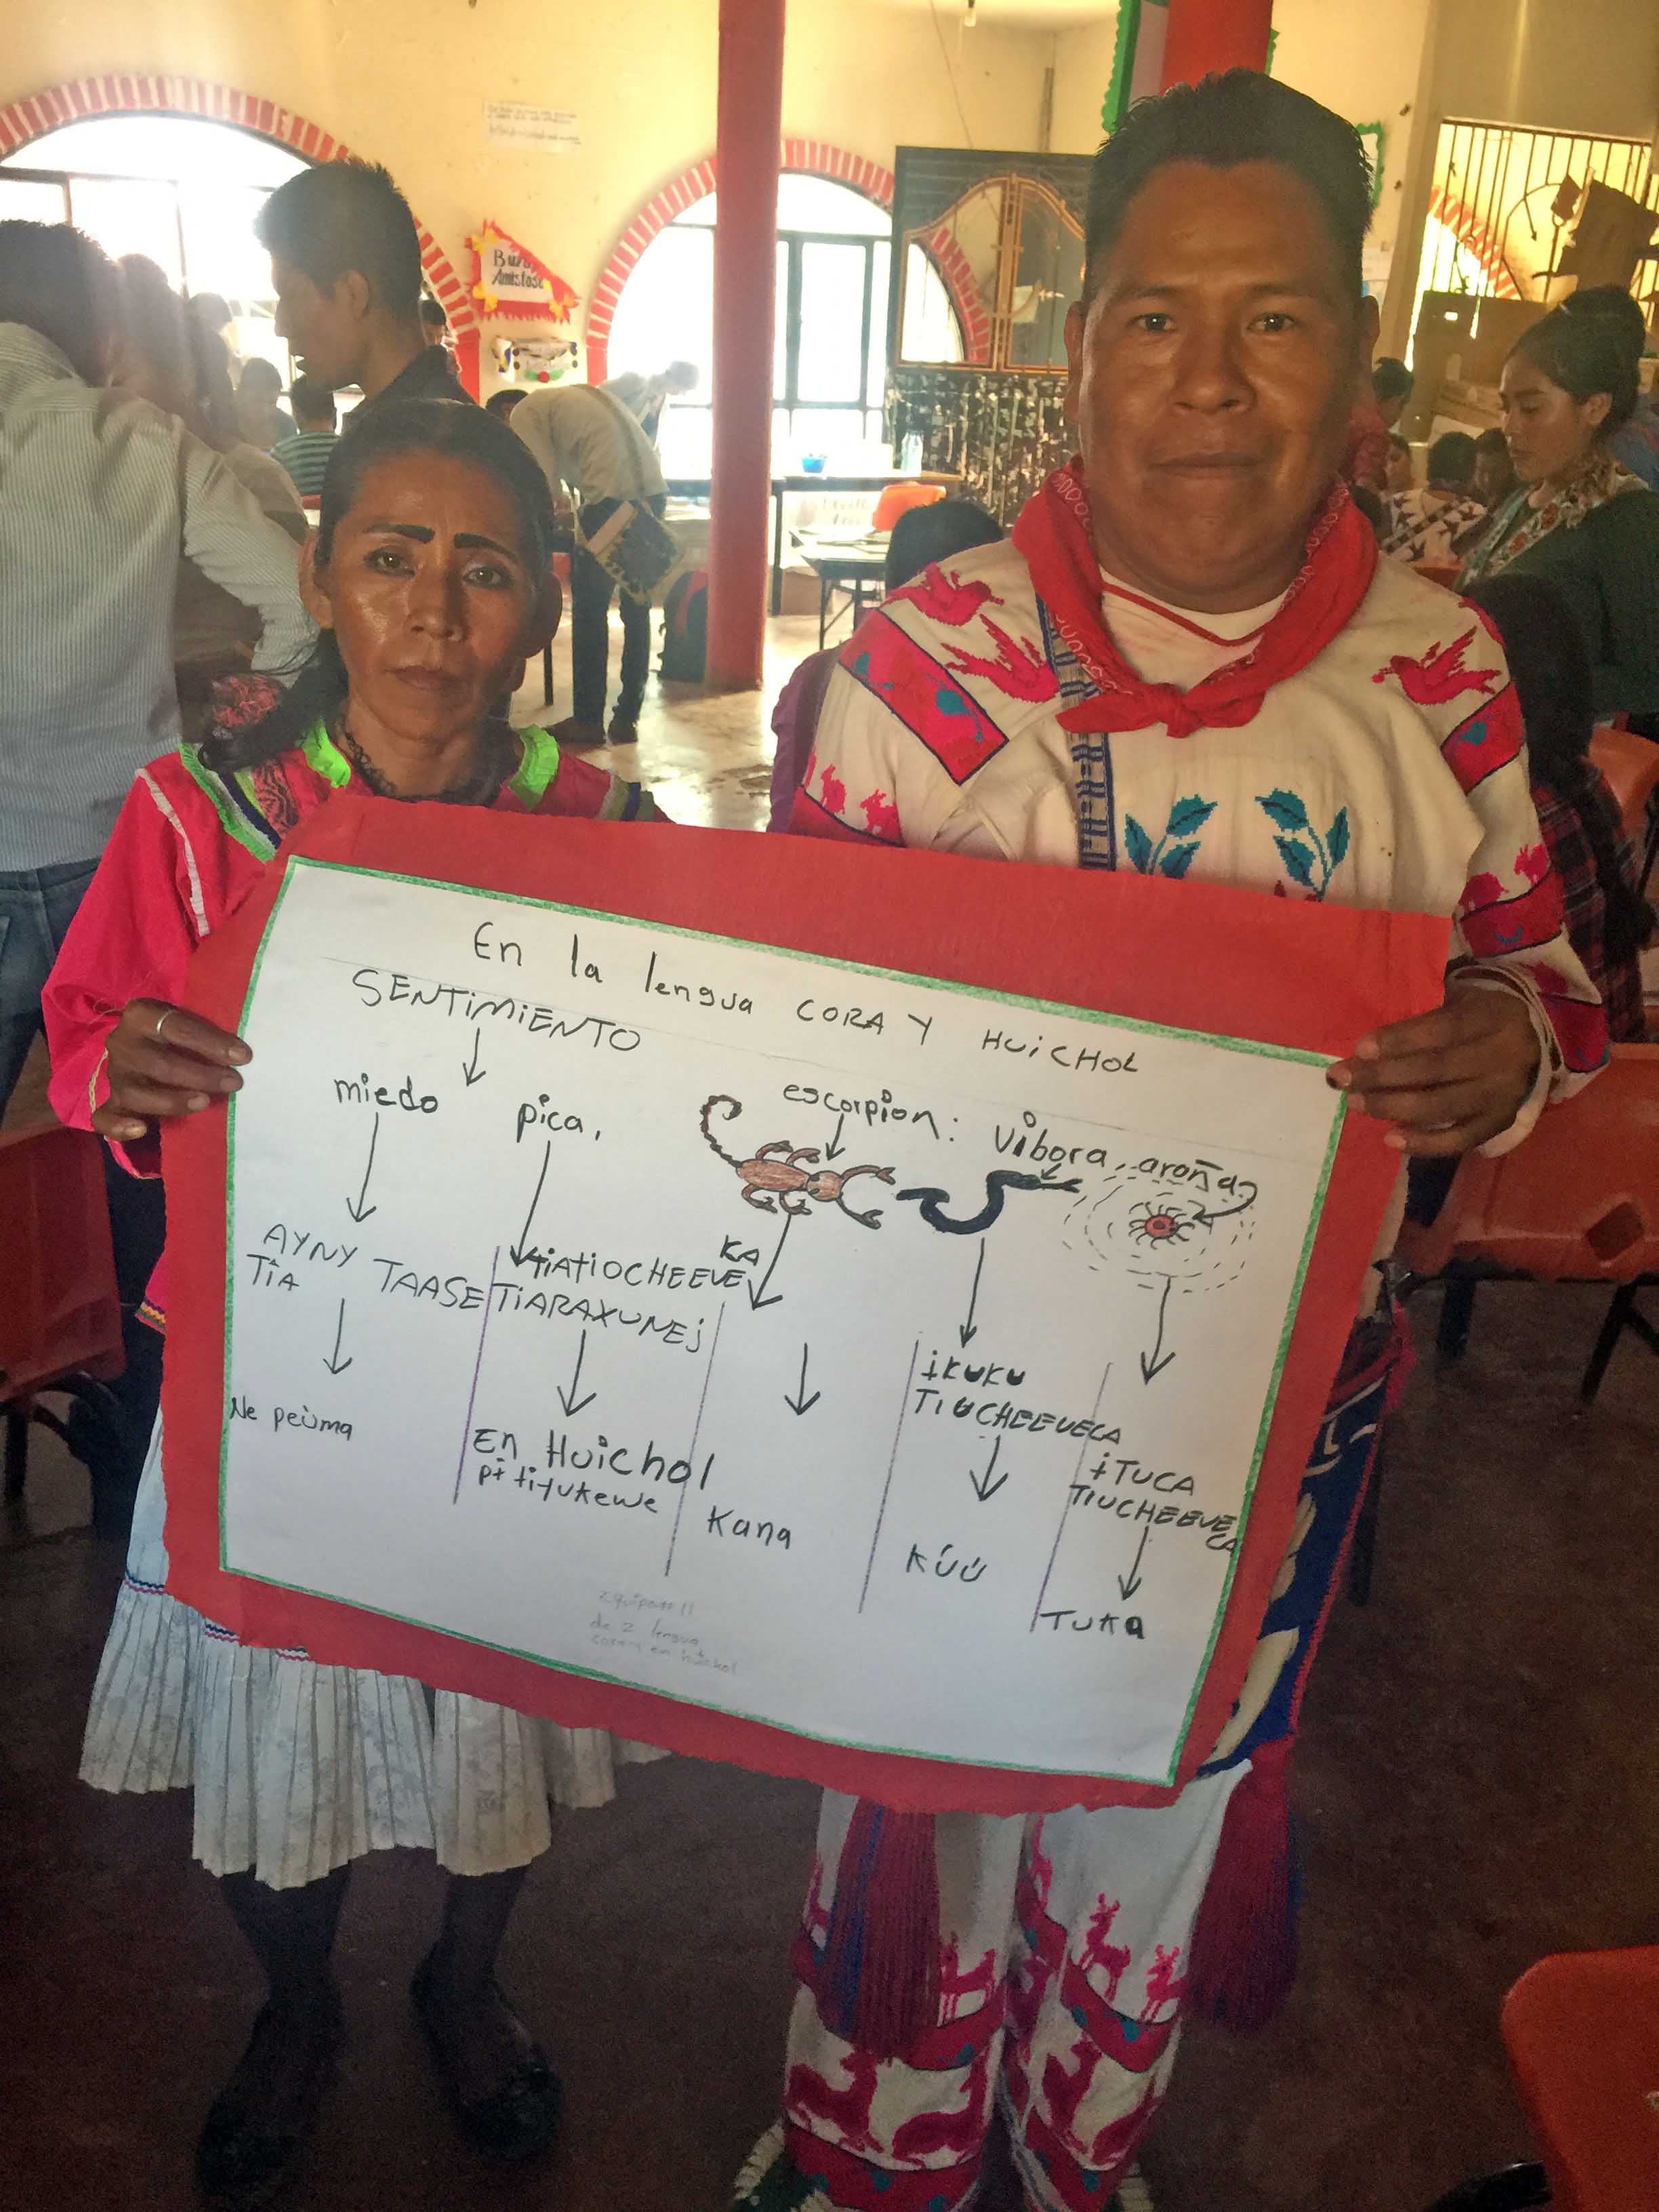 Buzón
Amistoso
En la lengua CORA Y HUICHOL
SENTIMIENTO
miedo
pica,
escorpion:
vibora,
araña
AYNY TAASE
TIA
TIATIOCHEEVE
KA
TIARAXUNEj
ɨKUKU
TIUCHEEVECA
ɨTUCA
TIUCHEEVE
CA
Ne peùma
En Huichol
pɨ tiyukewe
Kana
Kúú
TUKA
de 2 lengua
cora y en huichol